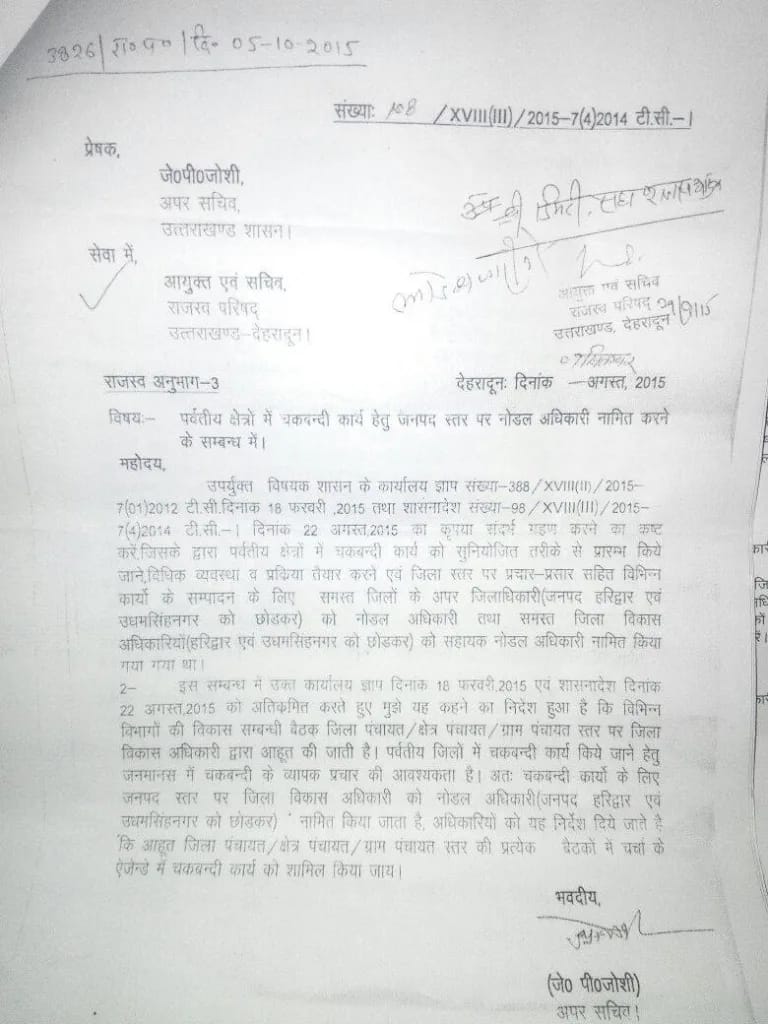 3826/रा०प०/दि० 05-10-2015
संख्याः 108 /XVIII(III)/2015-7(4)2014 टी.सी.-।
प्रेषक,
जे0पी0जोशी,
अपर सचिव,
उत्तराखण्ड शासन।
सेवा में,
आयुक्त एवं सचिव,
राजस्व परिषद्
उत्तराखण्ड-देहरादून।
आयुक्त एवं सचिव
राजस्व परिषद्
उत्तराखण्ड, देहरादून
राजस्व अनुभाग-3 देहरादूनः दिनांक -अगस्त, 2015
विषयः- पर्वतीय क्षेत्रों में चकबन्दी कार्य हेतु जनपद स्तर पर नोडल अधिकारी नामित करने
के सम्बन्ध में।
महोदय,
उपर्युक्त विषयक शासन के कार्यालय ज्ञाप संख्या-388/XVIII(II)/2015-
7(01)2012 टी.सी.दिनाक 18 फरवरी ,2015 तथा शासनादेश संख्या-98/XVIII(III)/2015-
7(4)2014 टी.सी.-। दिनांक 22 अगस्त,2015 का कृपया संदर्भ ग्रहण करने का कष्ट
करें,जिसके द्वारा पर्वतीय क्षेत्रों में चकबन्दी कार्य को सुनियोजित तरीके से प्रारम्भ किये
जाने,विधिक व्यवस्था व प्रक्रिया तैयार करने एवं जिला स्तर पर प्रचार-प्रसार सहित विभिन्न
कार्यो के सम्पादन के लिए समस्त जिलों के अपर जिलाधिकारी(जनपद हरिद्वार एवं
उधमसिंहनगर को छोडकर) को नोडल अधिकारी तथा समस्त जिला विकास
अधिकारियों(हरिद्वार एवं उधमसिंहनगर को छोडकर) को सहायक नोडल अधिकारी नामित किया
गया गया था।
2- इस सम्बन्ध में उक्त कार्यालय ज्ञाप दिनाक 18 फरवरी,2015 एवं शासनादेश दिनाक
22 अगस्त,2015 को अतिक्रमित करते हुए मुझे यह कहने का निदेश हुआ है कि विभिन्न
विभागों की विकास सम्बन्धी बैठक जिला पंचायत/क्षेत्र पंचायत/ग्राम पंचायत स्तर पर जिला
विकास अधिकारी द्वारा आहूत की जाती है। पर्वतीय जिलों में चकबन्दी कार्य किये जाने हेतु
जनमानस में चकबन्दी के व्यापक प्रचार की आवश्यकता है। अतः चकबन्दी कार्यो के लिए
जनपद स्तर पर जिला विकास अधिकारी को नोडल अधिकारी(जनपद हरिद्वार एवं
उधमसिंहनगर को छोडकर) नामित किया जाता है, अधिकारियों को यह निर्देश दिये जाते है
कि आहूत जिला पंचायत/क्षेत्र पंचायत/ग्राम पंचायत स्तर की प्रत्येक बैठकों में चर्चा के
ऐजेन्डे में चकबन्दी कार्य को शामिल किया जाय।
भवदीय,
(जे0 पी0जोशी)
अपर सचिव।